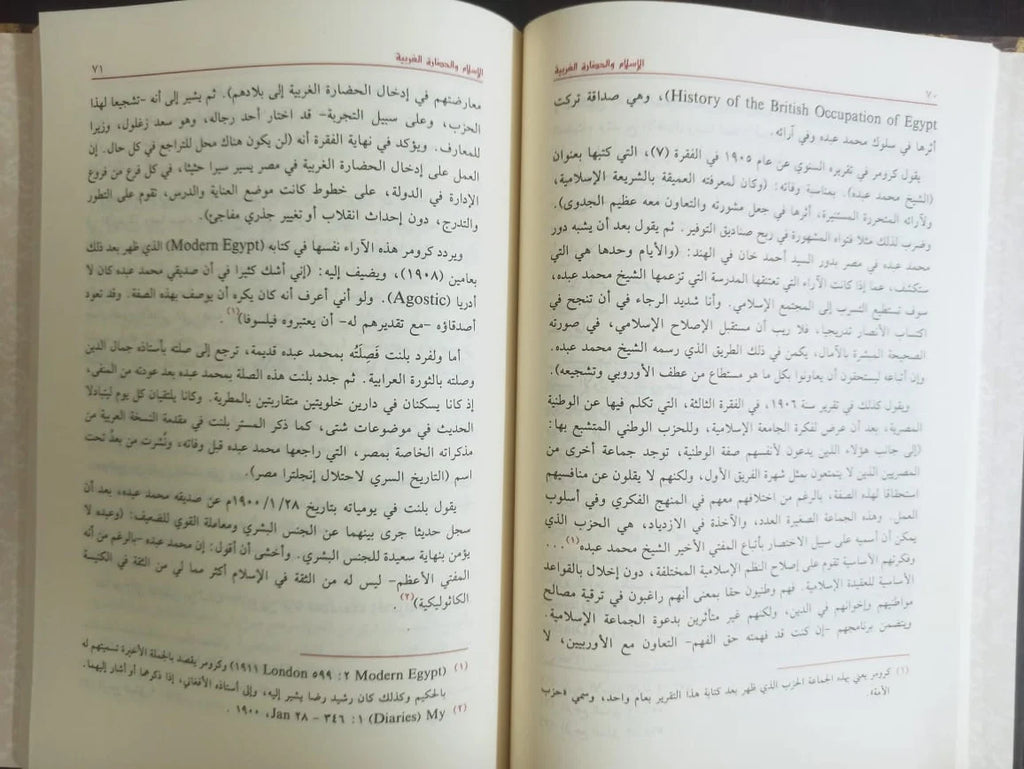 الإسلام والحضارة الغربية
٧٠
History of the British Occupation of Egypt)، وهي صداقة تركت
أثرها في سلوك محمد عبده وفي آرائه.
يقول كرومر في تقريره السنوي عن عام ١٩٠٥ في الفقرة (٧)، التي كتبها بعنوان
(الشيخ محمد عبده). بمناسبة وفاته: (وكان لمعرفته العميقة بالشريعة الإسلامية،
ولآرائه المتحررة المستنيرة، أثرها في جعل مشورته والتعاون معه عظيم الجدوى).
وضرب لذلك مثلا فتواه المشهورة في ربح صناديق التوفير. ثم يقول بعد أن يشبه دور
محمد عبده في مصر بدور السيد أحمد خان في الهند: (والأيام وحدها هي التي
ستكشف، عما إذا كانت الآراء التي تعتنقها المدرسة التي تزعمها الشيخ محمد عبده،
سوف تستطيع التسرب إلى المجتمع الإسلامي. وأنا شديد الرجاء في أن تنجح في
اكتساب الأنصار تدريجيا، فلا ريب أن مستقبل الإصلاح الإسلامي، في صورته
الصحيحة المبشرة بالآمال، يكمن في ذلك الطريق الذي رسمه الشيخ محمد عبده.
وإن أتباعه ليستحقون أن يعاونوا بكل ما هو مستطاع من عطف الأوروبي وتشجيعه).
ويقول كذلك في تقرير سنة ١٩٠٦، في الفقرة الثالثة، التي تكلم فيها عن الوطنية
المصرية، بعد أن عرض لفكرة الجامعة الإسلامية، وللحزب الوطني المتشبع بها:
(إلى جانب هؤلاء الذين يدعون لأنفسهم صفة الوطنية، توجد جماعة أخرى من
المصريين الذين لا يتمتعون بمثل شهرة الفريق الأول، ولكنهم لا يقلون عن منافسيهم
استحقاقا لهذه الصفة، بالرغم من اختلافهم معهم في المنهج الفكري وفي أسلوب
العمل. وهذه الجماعة الصغيرة العدد، والآخذة في الازدياد، هي الحزب الذي
يمكن أن أسميه على سبيل الاختصار بأتباع المفتي الأخير الشيخ محمد عبده(١)...
وفكرتهم الأساسية تقوم على إصلاح النظم الإسلامية المختلفة، دون إخلال بالقواعد
الأساسية للعقيدة الإسلامية. فهم وطنيون حقا بمعنى أنهم راغبون في ترقية مصالح
مواطنيهم وإخوانهم في الدين، ولكنهم غير متأثرين بدعوة الجماعة الإسلامية.
ويتضمن برنامجهم -إن كنت قد فهمته حق الفهم- التعاون مع الأوربيين، لا
(١) كرومر يعني بهذه الجماعة الحزب الذي ظهر بعد كتابة هذا التقرير بعام واحد، وسمي «حزب
الأمة»
الإسلام والحضارة الغربية
٧١
معارضتهم في إدخال الحضارة الغربية إلى بلادهم). ثم يشير إلى أنه -تشجيعا لهذا
الحزب، وعلى سبيل التجربة- قد اختار أحد رجاله، وهو سعد زغلول، وزيرا
للمعارف. ويؤكد في نهاية الفقرة أنه (لن يكون هناك محل للتراجع في كل حال. إن
العمل على إدخال الحضارة الغربية في مصر يسير سيرا حثيثا، في كل فرع من فروع
الإدارة في الدولة، على خطوط كانت موضع العناية والدرس، تقوم على التطور
والتدرج، دون إحداث انقلاب أو تغيير جذري مفاجئ).
ويردد كرومر هذه الآراء نفسها في كتابه (Modern Egypt) الذي ظهر بعد ذلك
بعامين (١٩٠٨)، ويضيف إليه: (إني أشك كثيرا في أن صديقي محمد عبده كان لا
أدريا (Agostic). ولو أني أعرف أنه كان يكره أن يوصف بهذه الصفة. وقد تعود
أصدقاؤه -مع تقديرهم له- أن يعتبروه فيلسوفا)(١).
أما ولفرد بلنت فَصِلَتُه بمحمد عبده قديمة، ترجع إلى صلته بأستاذه جمال الدين
وصلته بالثورة العرابية. ثم جدد بلنت هذه الصلة بمحمد عبده بعد عودته من المنفى،
إذ كانا يسكنان في دارين خلويتين متقاربتين بالمطرية. وكانا يلتقيان كل يوم ليتبادلا
الحديث في موضوعات شتى، كما ذكر المستر بلنت في مقدمة النسخة العربية من
مذكراته الخاصة بمصر، التي راجعها محمد عبده قبل وفاته، ونُشرت من بعدُ تحت
اسم (التاريخ السري لاحتلال إنجلترا مصر).
يقول بلنت في يومياته بتاريخ ١٩٠٠/١/٢٨م عن صديقه محمد عبده، بعد أن
سجل حديثا جرى بينهما عن الجنس البشري ومعاملة القوي للضعيف: (وعبده لا
يؤمن بنهاية سعيدة للجنس البشري. وأخشى أن أقول: إن محمد عبده -بالرغم من أنه
المفتي الأعظم- ليس له من الثقة في الإسلام أكثر مما لي من الثقة في الكنيسة
الكاثوليكية)(٢).
(١) (Modern Egypt ٢ : ٥٩٩ London ١٩١١) وكرومر يقصد بالجملة الأخيرة تسميتهم له
بالحكيم وكذلك كان رشيد رضا يشير إليه، وإلى أستاذه الأفغاني، إذا ذكرها أو أشار إليهما.
(٢) My (Diaries) ١ : ٣٤٦ – ٢٨ Jan، ١٩٠٠.